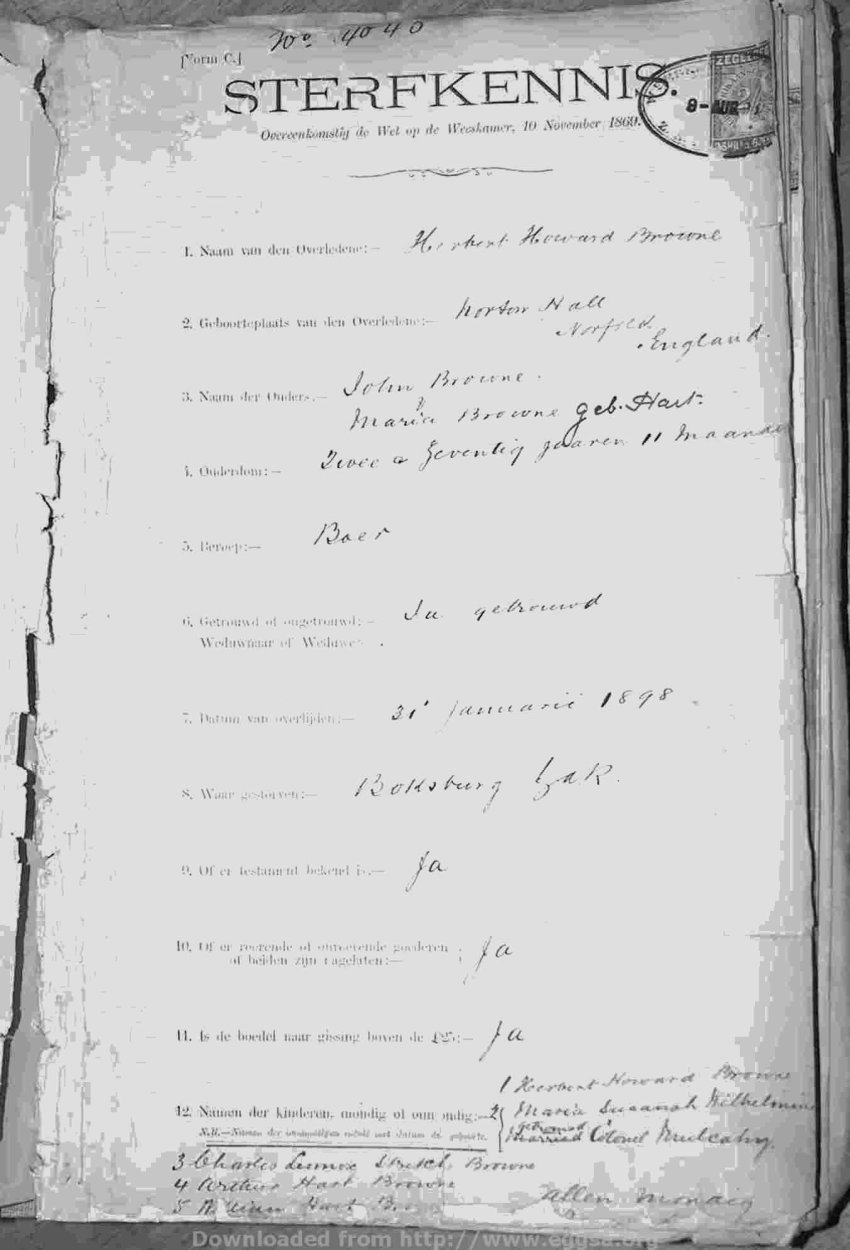 No 4040
[Form C.]
STERFKENNIS.
Overeenkomstig de Wet op de Weeskamer, 10 November 1869.
ZEGEL
8-AUG
1. Naam van den Overledene:— Herbert Howard Browne
2. Geboorteplaats van den Overledene:— Norton Hall
Norfold
England.
3. Naam der Ouders.— John Browne.
Maria Browne geb. Hart.
4. Ouderdom:— Twee a Zeventig jaaren 11 Maande
5. Beroep:— Boer
6. Getrouwd of ongetrouwd:— Ja getrouwd
Weduwnaar of Weduwe:
7. Datum van overlijden:— 31 Januarie 1898
8. Waar gestorven:— Boksburg ZAR.
9. Of er testament bekend is.— Ja
10. Of er roerende of onroerende goederen : Ja
of beiden zijn nagelaten:—
11. Is de boedel naar gissing boven de £25:— Ja
1 Herbert Howard Browne
12. Namen der kinderen, mondig of onmondig:— 2 Maria Susanah Wilhelmina
N.B.—Namen der onmondigen enkelt met datum de geboorte. getrouwd married Colonel Mulcahy.
3 Charles Lennox Stretch Browne
4 Arthur Hart Browne
5 Hart
allen mondig
Downloaded from http://www.eggsa.org